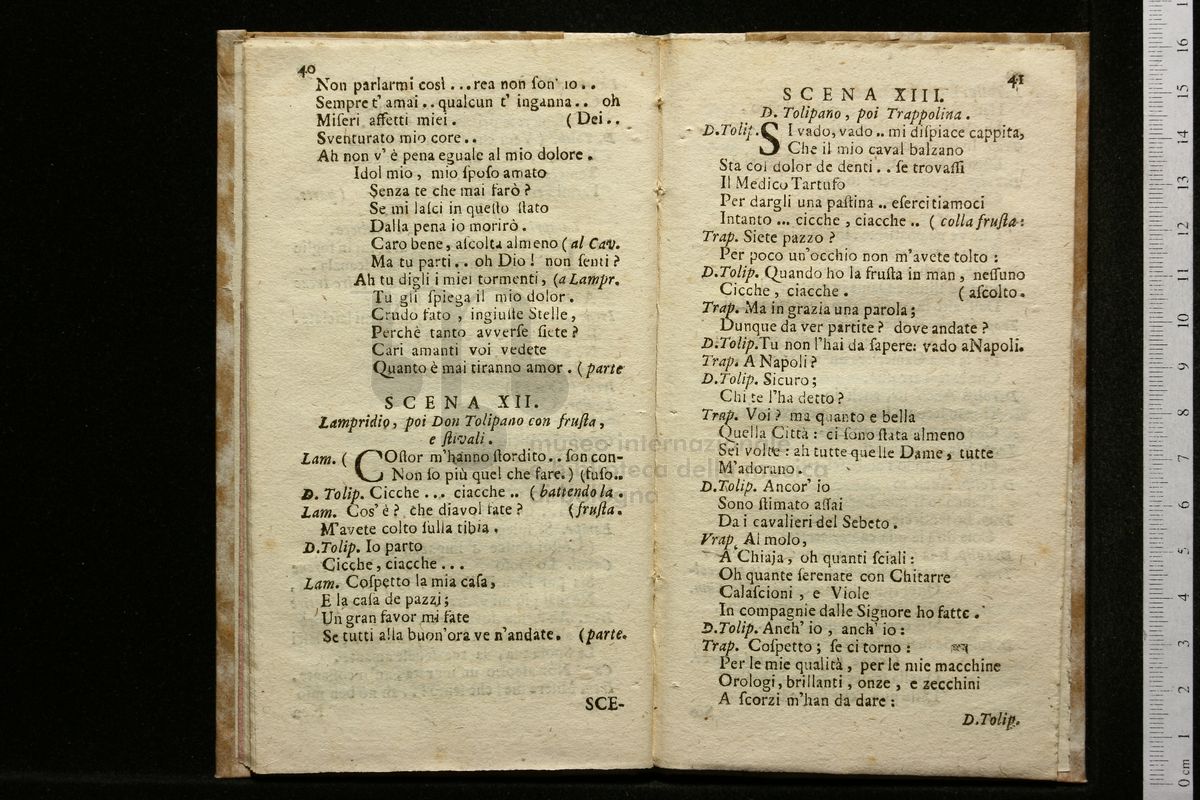 40
Non parlarmi così ...rea non ſon' io..
Sempre t' amai.. qualcun t' inganna.. oh
Miſeri affetti miei. (Dei..
Sventurato mio core..
Ah non v' è pena eguale al mio dolore.
Idol mio, mio ſpoſo amato
Senza te che mai farò?
Se mi laſci in queſto ſtato
Dalla pena io morirò.
Caro bene, aſcolta almeno (al Cav.
Ma tu parti.. oh Dio! non ſenti?
Ah tu digli i miei tormenti, (a Lampr.
Tu gli ſpiega il mio dolor.
Crudo fato, ingiuſte Stelle,
Perchè tanto avverſe ſiete?
Cari amanti voi vedete
Quanto è mai tiranno amor. (parte
SCENA XII.
Lampridio, poi Don Tolipano con fruſta,
e ſtivali.
Lam. (COſtor m'hanno ſtordito.. ſon con-
Non ſo più quel che fare.) (fuſo..
D. Tolip. Cicche ... ciacche .. (battendo la.
Lam. Cos' è? che diavol fate? (fruſta.
M'avete colto ſulla tibia.
D.Tolip. Io parto
Cicche, ciacche...
Lam. Coſpetto la mia caſa,
E la caſa de pazzi;
Un gran favor mi fate
Se tutti alla buon'ora ve n'andate. (parte.
SCE-
41
SCENA XIII.
D. Tolipano, poi Trappolina.
D.Tolip. SI vado, vado.. mi diſpiace cappita,
Che il mio caval balzano
Sta coi dolor de denti.. ſe trovaſſi
Il Medico Tartufo
Per dargli una paſtina.. eſercitiamoci
Intanto ... cicche, ciacche.. (colla fruſta:
Trap. Siete pazzo?
Per poco un'occhio non m'avete tolto:
D.Tolip. Quando ho la fruſta in man, neſſuno
Cicche, ciacche. (aſcolto.
Trap. Ma in grazia una parola;
Dunque da ver partite? dove andate?
D.Tolip. Tu non l'hai da ſapere: vado aNapoli.
Trap. A Napoli?
D.Tolip. Sicuro;
Chi te l'ha detto?
Trap. Voi? ma quanto e bella
Quella Città: ci ſono ſtata almeno
Sei volte: ah tutte quelle Dame, tutte
M'adorano.
D.Tolip. Ancor' io
Sono ſtimato aſſai
Da i cavalieri del Sebeto.
Trap. Al molo,
A Chiaja, oh quanti ſciali:
Oh quante ſerenate con Chitarre
Calaſcioni, e Viole
In compagnie dalle Signore ho fatte.
D.Tolip. Anch' io, anch' io:
Trap. Coſpetto; ſe ci torno:
Per le mie qualità, per le mie macchine
Orologi, brillanti, onze, e zecchini
A ſcorzi m'han da dare:
D.Tolip.